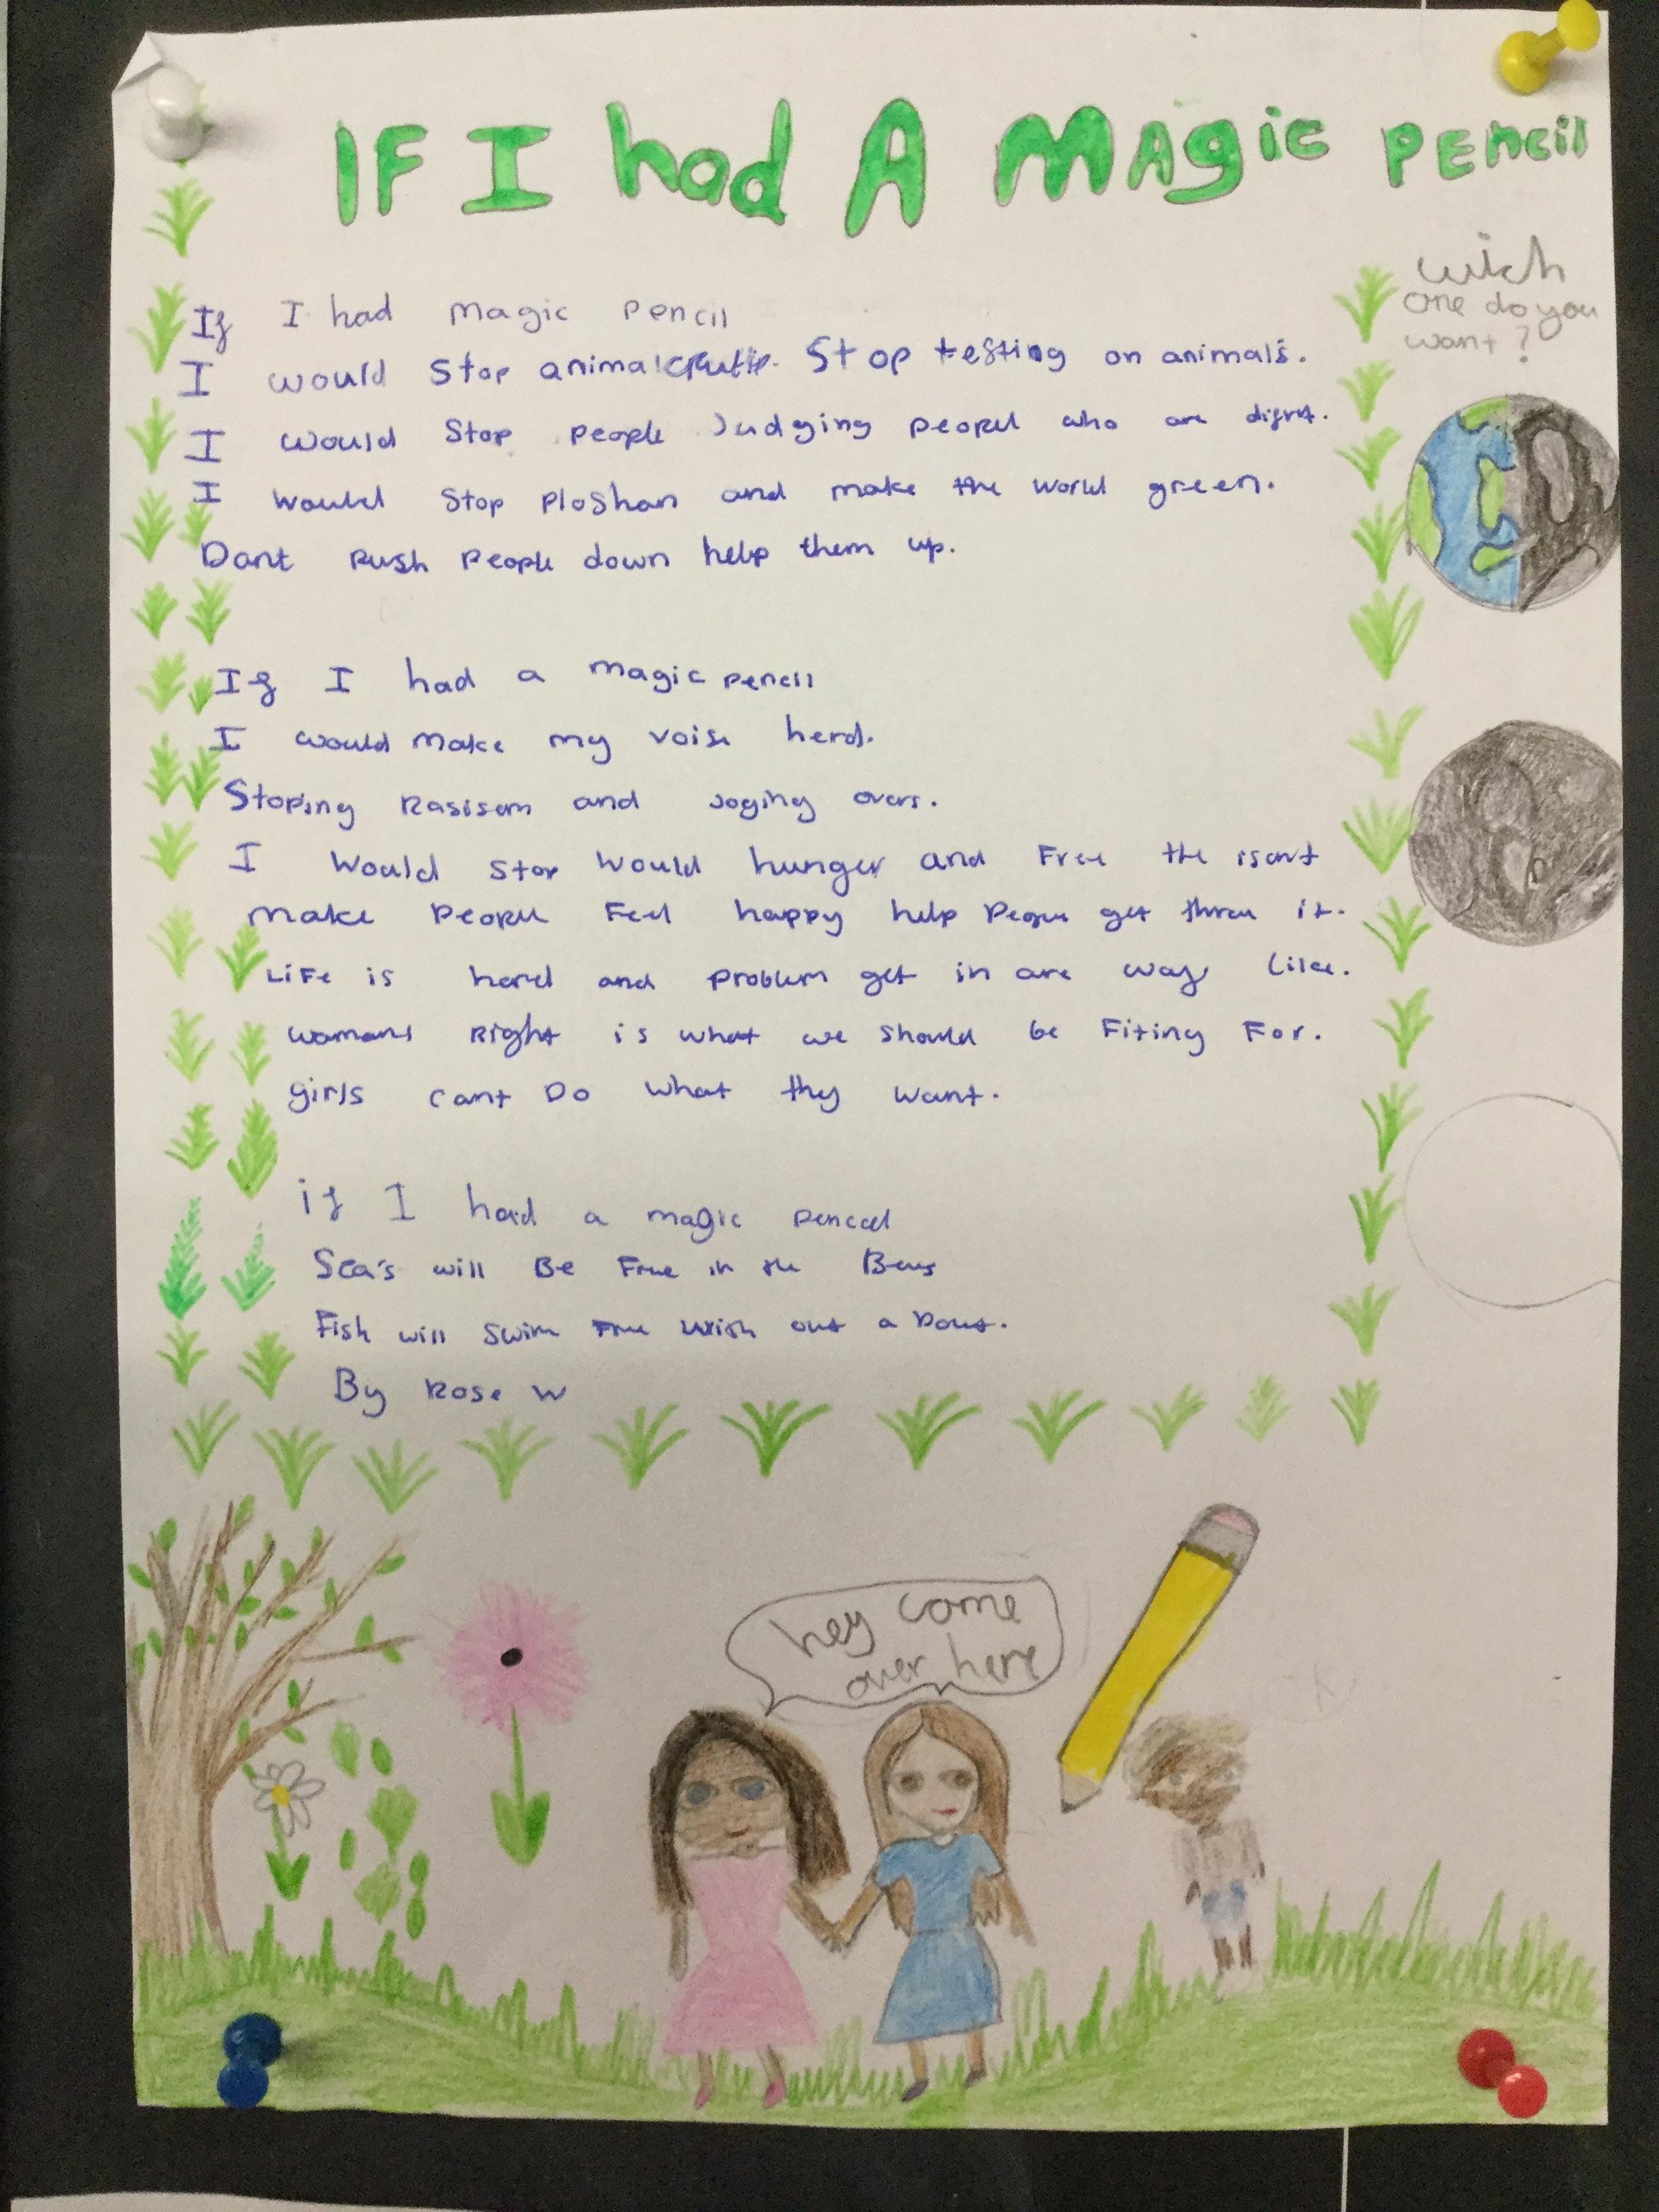 IF I had A MAgic PENcil
wich
one do you
want?
If I had magic pencil
I would Stop animal Stop testing on animals.
I would Stop people Judging people who are difrnt.
I would Stop Ploshan and make the world green.
Dant Push People down help them up.
If I had a magic pencil
I would make my voise herd.
Stoping Rasisem and Joging overs.
I would stop would hunger and Free the isant
make people Feel happy help People get threw it.
LiFe is hard and problem get in are way like.
womans Right is what we should be Fiting For.
girls cant Do what thy want.
if I had a magic
Sea's will Be Free in the
Fish will Swim Free out a Dout.
By Rose W
hey come
over here